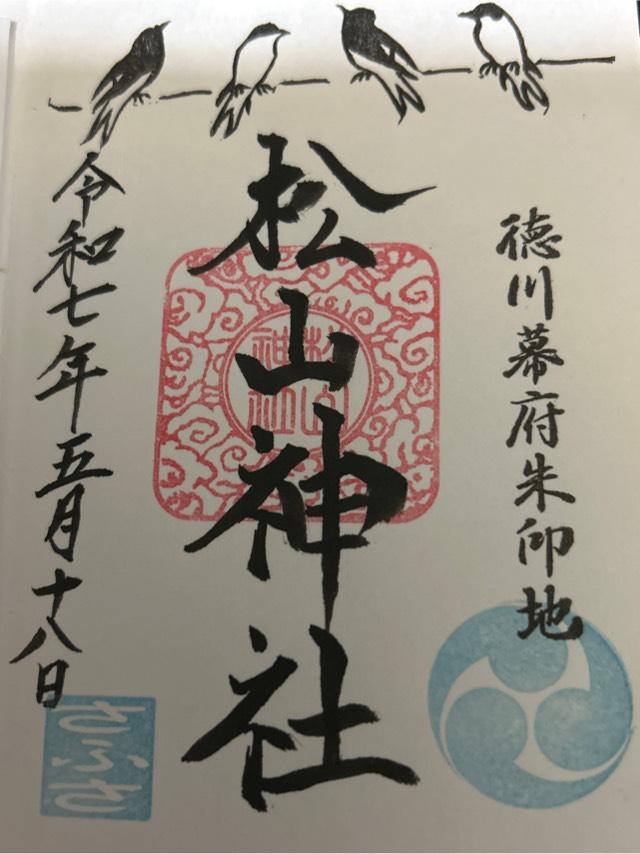 徳川幕府朱印地
松山神社
松山神社
令和七年五月十八日
さふさ